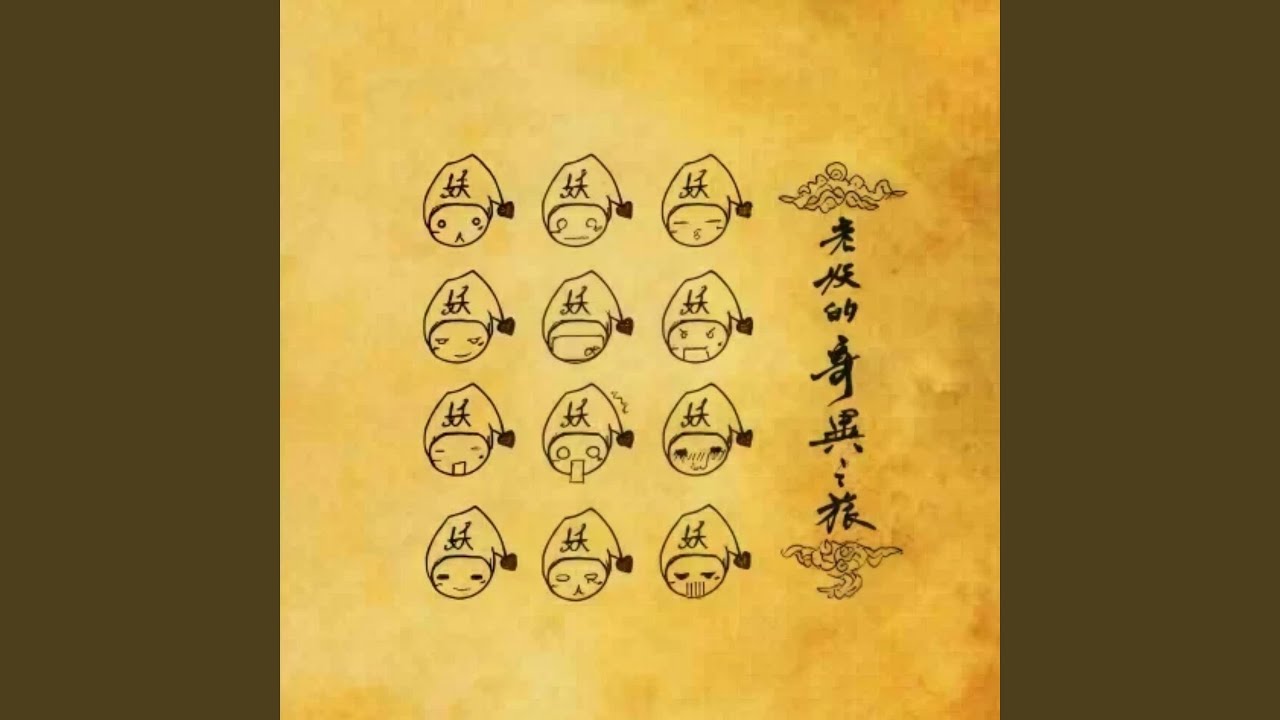 妖 妖 妖
妖 妖 妖
妖 妖 妖
妖 妖 妖
老妖的哥異之旅